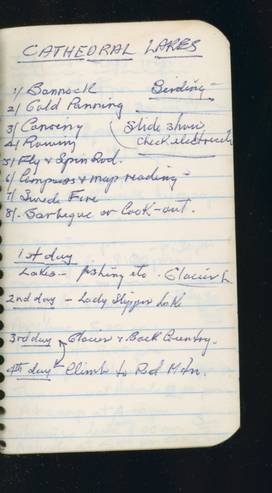 CATHEDRAL LAKES
1/ Bannock Birding
2/ Gold Panning
3/ Canoeing Slide show
4/ Rowing check electricity
5/ Fly & Spin Rod.
6/ Compass & map reading
7/ Swede Fire
8/. Barbeque or Cook-out.
1st day
Lakes - fishing etc. Glacier L
2nd day - Lady Slipper Lake
3rd day Glacier & Back Country.
4th day Climb to Red Mtn.